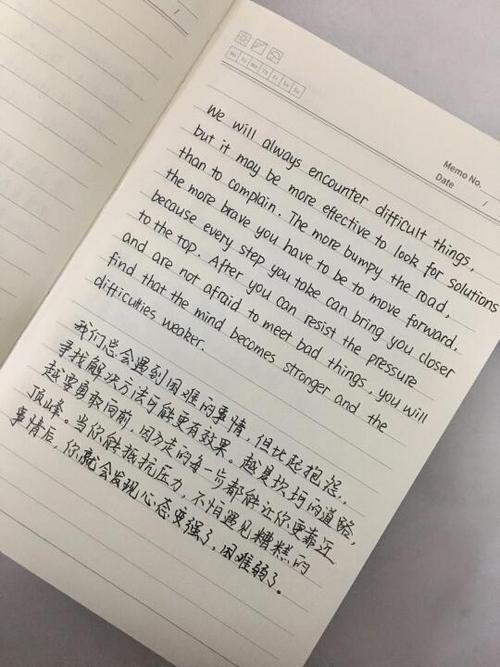 Mo Tu We Th Fr Sa Su
Memo No.
Date /
We will always encounter difficult things,
but it may be more effective to look for solutions
than to complain. The more bumpy the road,
the more brave you have to be to move forward.
because every step you take can bring you closer
to the top. After you can resist the pressure
and are not afraid to meet bad things, you will
find that the mind becomes stronger and the
difficulties weaker.
我们总会遇到困难的事情，但比起抱怨，
寻找解决方法可能更有效果。越是坎坷的道路，
越要勇敢向前，因为走的每一步都能让你更靠近
顶峰。当你能抵抗压力，不怕遇见糟糕的
事情后，你就会发现心态更强了，困难弱了。